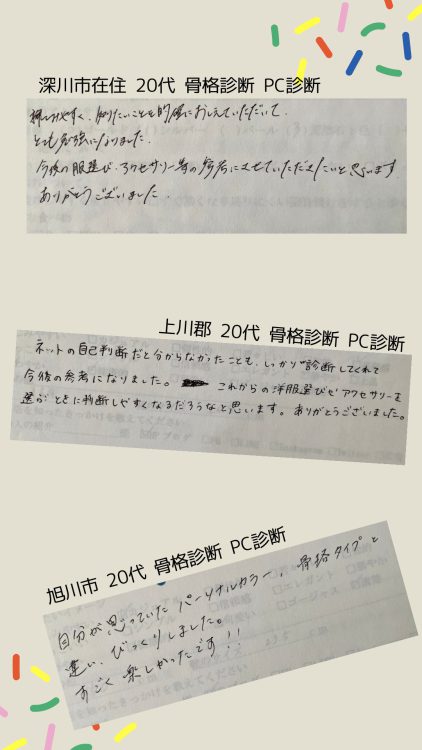 深川市在住 20代 骨格診断 PC診断
すく、知りたいことも的確におしえていただいて、
とても勉強になりました。
今後の服選び、アクセサリー等の参考にさせていただきたいと思います
ありがとうございました。
上川郡 20代 骨格診断 PC診断
ネットの自己判断だと分からなかったことも、しっかり診断してくれて
今後の参考になりました。 これからの洋服選びやアクセサリーを
選ぶときに判断しやすくなるだろうなと思います。ありがとうございました。
旭川市 20代 骨格診断 PC診断
自分が思っていたパーソナルカラー、骨格タイプと
違い、びっくりしました。
すごく楽しかったです!!